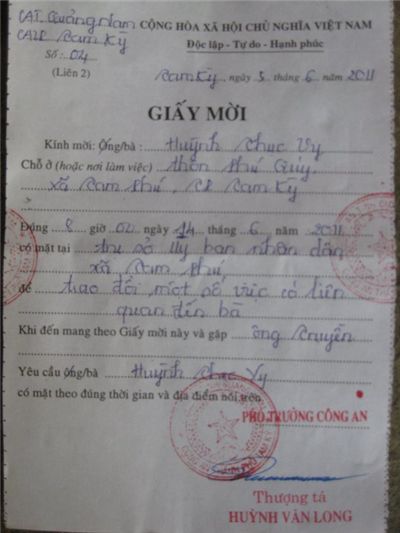 CAT. Quảng Nam CỘNG HÒA XÃ HỘI CHỦ NGHĨA VIỆT NAM
CATP Tam Kỳ Độc lập - Tự do - Hạnh phúc
Số: 04
(Liên 2) Tam Kỳ, ngày 5 tháng 6 năm 2011
GIẤY MỜI
Kính mời: Ông/bà: Huỳnh Thục Vy
Chỗ ở (hoặc nơi làm việc) thôn Phú Quý,
xã Tam Phú, TP Tam Kỳ
Đúng 8 giờ 00 ngày 14 tháng 6 năm 2011
có mặt tại trụ sở Uỷ ban nhân dân
xã Tam Phú,
để trao đổi một số việc có liên
quan đến bà
Khi đến mang theo Giấy mời này và gặp ông Truyền
Yêu cầu ông/bà Huỳnh Thục Vy
có mặt theo đúng thời gian và địa điểm nói trên.
PHÓ TRƯỞNG CÔNG AN
Thượng tá
HUỲNH VĂN LONG